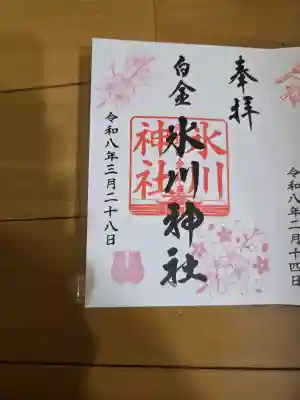 奉拝
白金
氷川神社
氷川
神社
令和八年三月二十八日
令和八年二月十四日